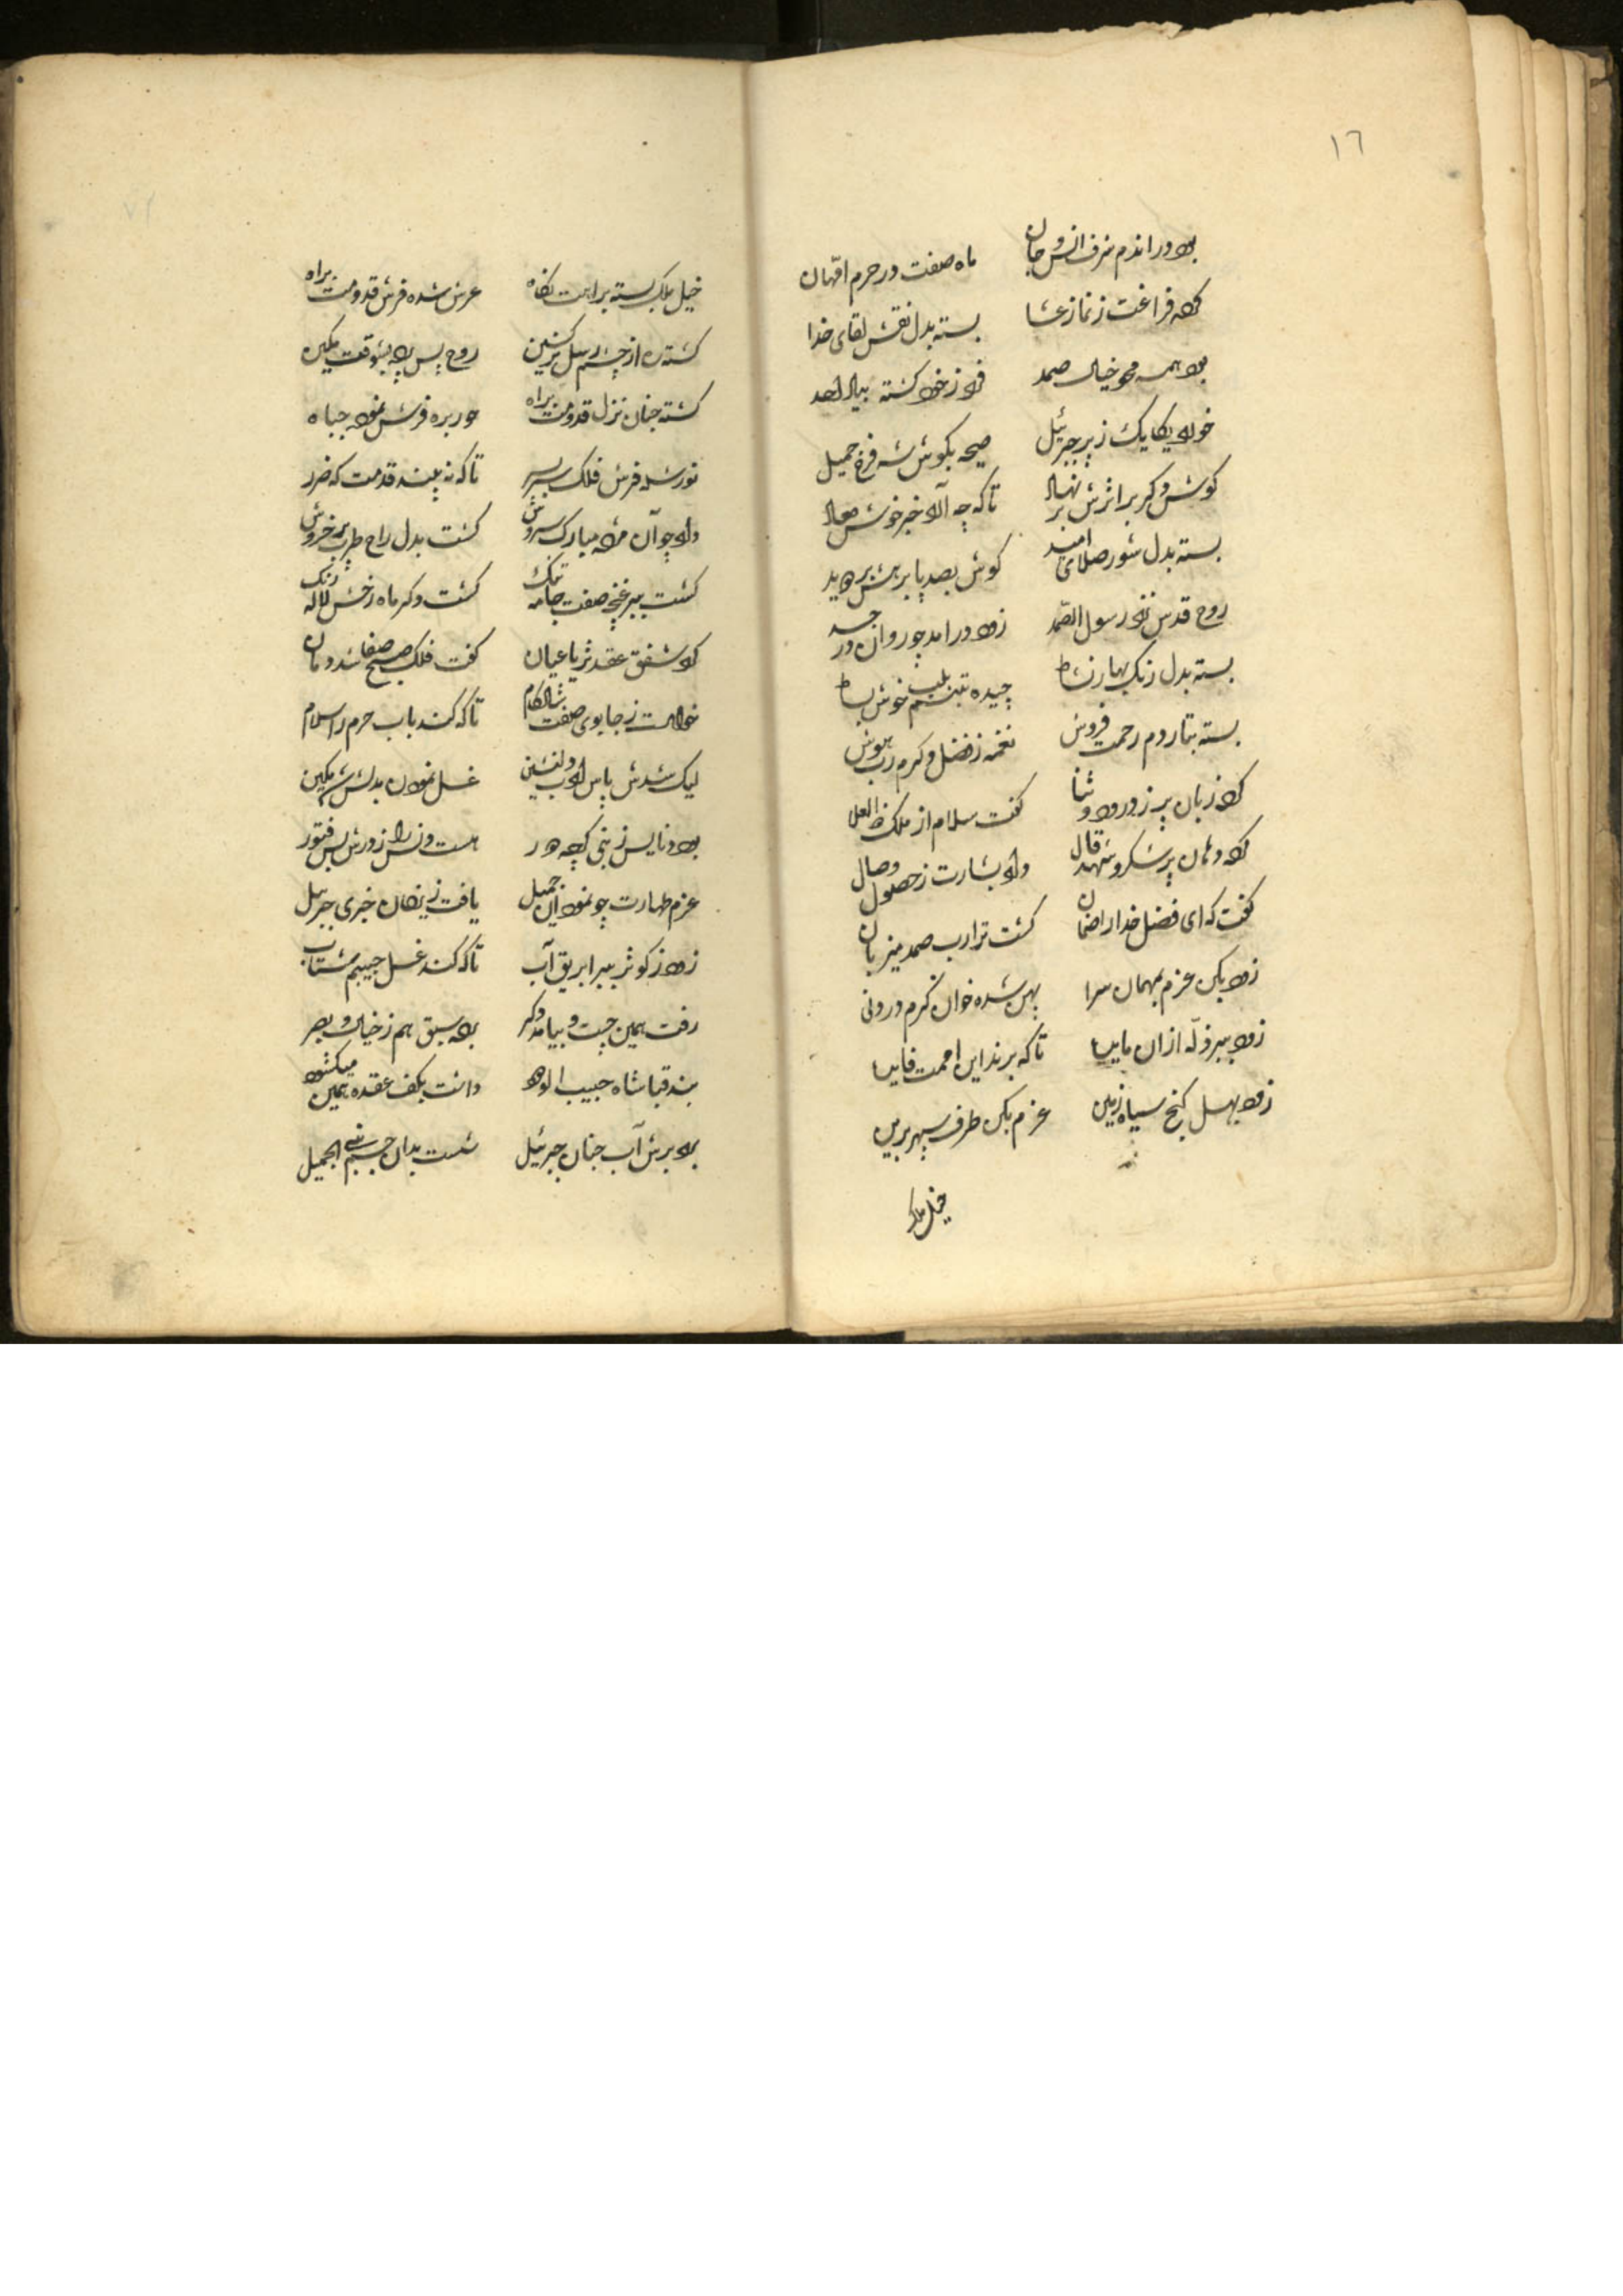 ١٦
بود دراندم شرف انس و جان
ماه صفت در حرم امّهان
کرده فراغت ز نماز عشا
بسته بدل نقش لقای خدا
بود همه محو خیال صمد
فرد ز خود کشته بیاد احد
خورد یکایک ز پر جبرئیل
صیحه بکوش شه فرخ جمیل
کوش دکر بر اثرش بر نهاد
تا که چه آرد خبر خوش معاد
بسته بدل شور صلای امید
کوش بصد پا برهش بر دوید
روح قدس نزد رسول الصّمد
زود درامد چو روان در جسد
بسته بدل رنک بهار نشاط
چیده تبسّم بلب خوش بساط
بسته بتار دم رحمت فروش
نغمه ز فضل و کرم رب بهوش
کرد زبان پر ز درود و ثنا
کفت سلام از ملک ذالعلا
کرد دهان پر شکر و شهد قال
داد بشارت ز حصول وصال
کفت که ای فضل خدا را ضمان
کشت ترا رب صمد میزبان
زود بکن عزم بمهمان سرا
پهن شده خوان کرم در ورای
زود ببر ذلّه ازان مایدا
تا که برند این امت فایدا
زود بهل کنج سیاه زمین
عزم بکن طرف سپهر برین
خیل ملک
خیل ملک بسته براهت نکاه
عرش شده فرش قدومت براه
کشته ره از چشم رسل پر کنین
روح پس پرده بشوقت مکین
کشته جنان نزل قدومت براه
حور بره فرش نموده جباه
نور شده فرش فلک سر بسر
تا که نه بیند قدمت که ضرر
داد چو آن مژده مبارک سروش
کشت بدل راح طرب پر خروش
کشت ببر غنچه صفت جامه تنک
کشت دکر ماه رخش لاله رنک
کرد شفق عقد ثریا عیان
کفت فلک صبح صفا شد دمان
خواست ز جا بوی صفت شادکام
تا که کند باب حرم را سلام
لیک شدش پاس ادب دلنشین
غسل نمودن بدلش شد مکین
عزم طهارت چو نمود آن جمیل
یافت ز یزدان خبری جبرئیل
زود ز کوثر ببر ابریق آب
تا که کند غسل حبیبم شتاب
رفت همین چست و بیامد دکر
برده سبق هم ز خیال و بصر
بند قبا شاه حبیب الودود
داشت بکف عقده همین میکشود
برد برش آب جنان جبرئیل
شست بدان جسم نبی الجمیل